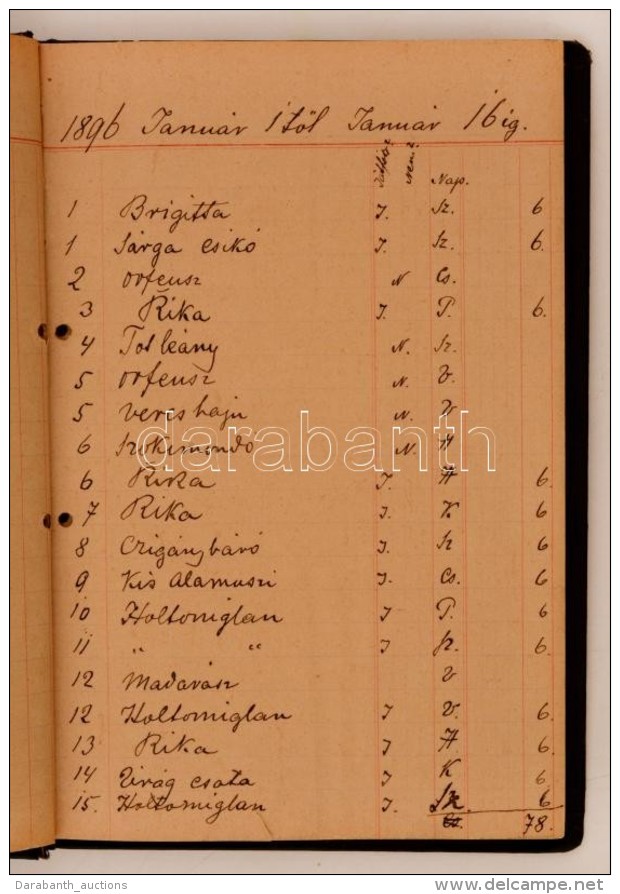 1896 Január 1től Január 16ig.
Nap.
1 Brigitta I. Sz. 6.
1 Sárga csikó I. Sz. 6.
2 orfeusz N Cs.
3 Rika I. P. 6.
4 Tot leány N. Sz.
5 orfeusz N. V.
5 veres haju N. V
6 Szókimondó N. H
6 Rika I. H 6.
7 Rika I. K. 6
8 Czigánybáró I. Sz 6
9 Kis alamuszi I. Cs. 6
10 Holtomiglan I P. 6
11 " " I Sz. 6.
12 Madarász V
12 Holtomiglan I V. 6.
13 Rika I H 6.
14 Virág csata I K 6
15. Holtomiglan I. Sz. 6
78.
darabanth
Darabanth_auctions
www.delcampe.net